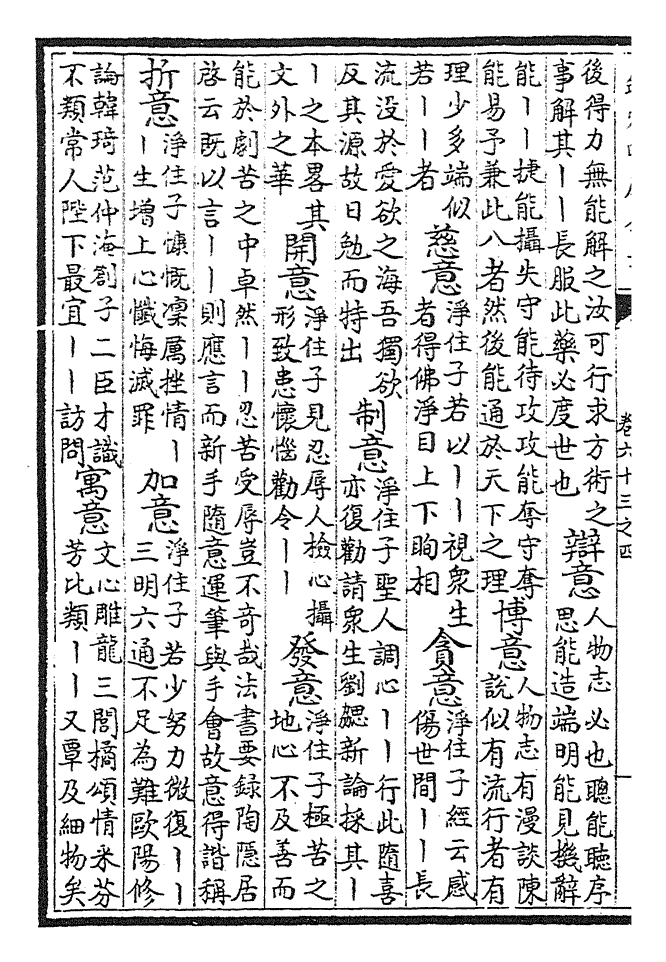 後得力無能解之汝可行求方術之
事解其丨丨長服此藥必度世也
辯意
人物志必也聰能聽序
思能造端明能見機辭
能丨丨捷能攝失守能待攻攻能奪守奪
能易予兼此八者然後能通於天下之理
博意
人物志有漫談陳
說似有流行者有
理少多端似
若丨丨者
慈意
淨住子若以丨丨視衆生
者得佛淨目上下眴相
貪意
淨住子經云感
傷世間丨丨長
流没於愛欲之海吾獨欲
反其源故日勉而特出
制意
淨住子聖人調心丨丨行此隨喜
亦復勸請衆生劉勰新論採其丨
丨之本畧其
文外之華
開意
淨住子見忍辱人檢心攝
形致患懷惱勸令丨丨
發意
淨住子極苦之
地心不及善而
能於劇苦之中卓然丨丨忍苦受辱豈不奇哉法書要録陶隠居
啓云既以言丨丨則應言而新手隨意運筆與手會故意得諧稱
折意
淨住子慷慨凜厲挫情丨
丨生增上心懺悔滅罪
加意
淨住子若少努力微復丨丨
三明六通不足為難歐陽修
論韓琦范仲淹劄子二臣才識
不類常人陛下最宜丨丨訪問
寓意
文心雕龍三閭橘頌情采芬
芳比類丨丨又覃及細物矣
卷六十三之四